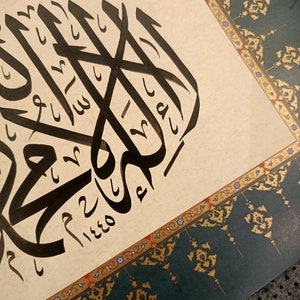 لا إله إلا الله
محمد
١٤٤٥